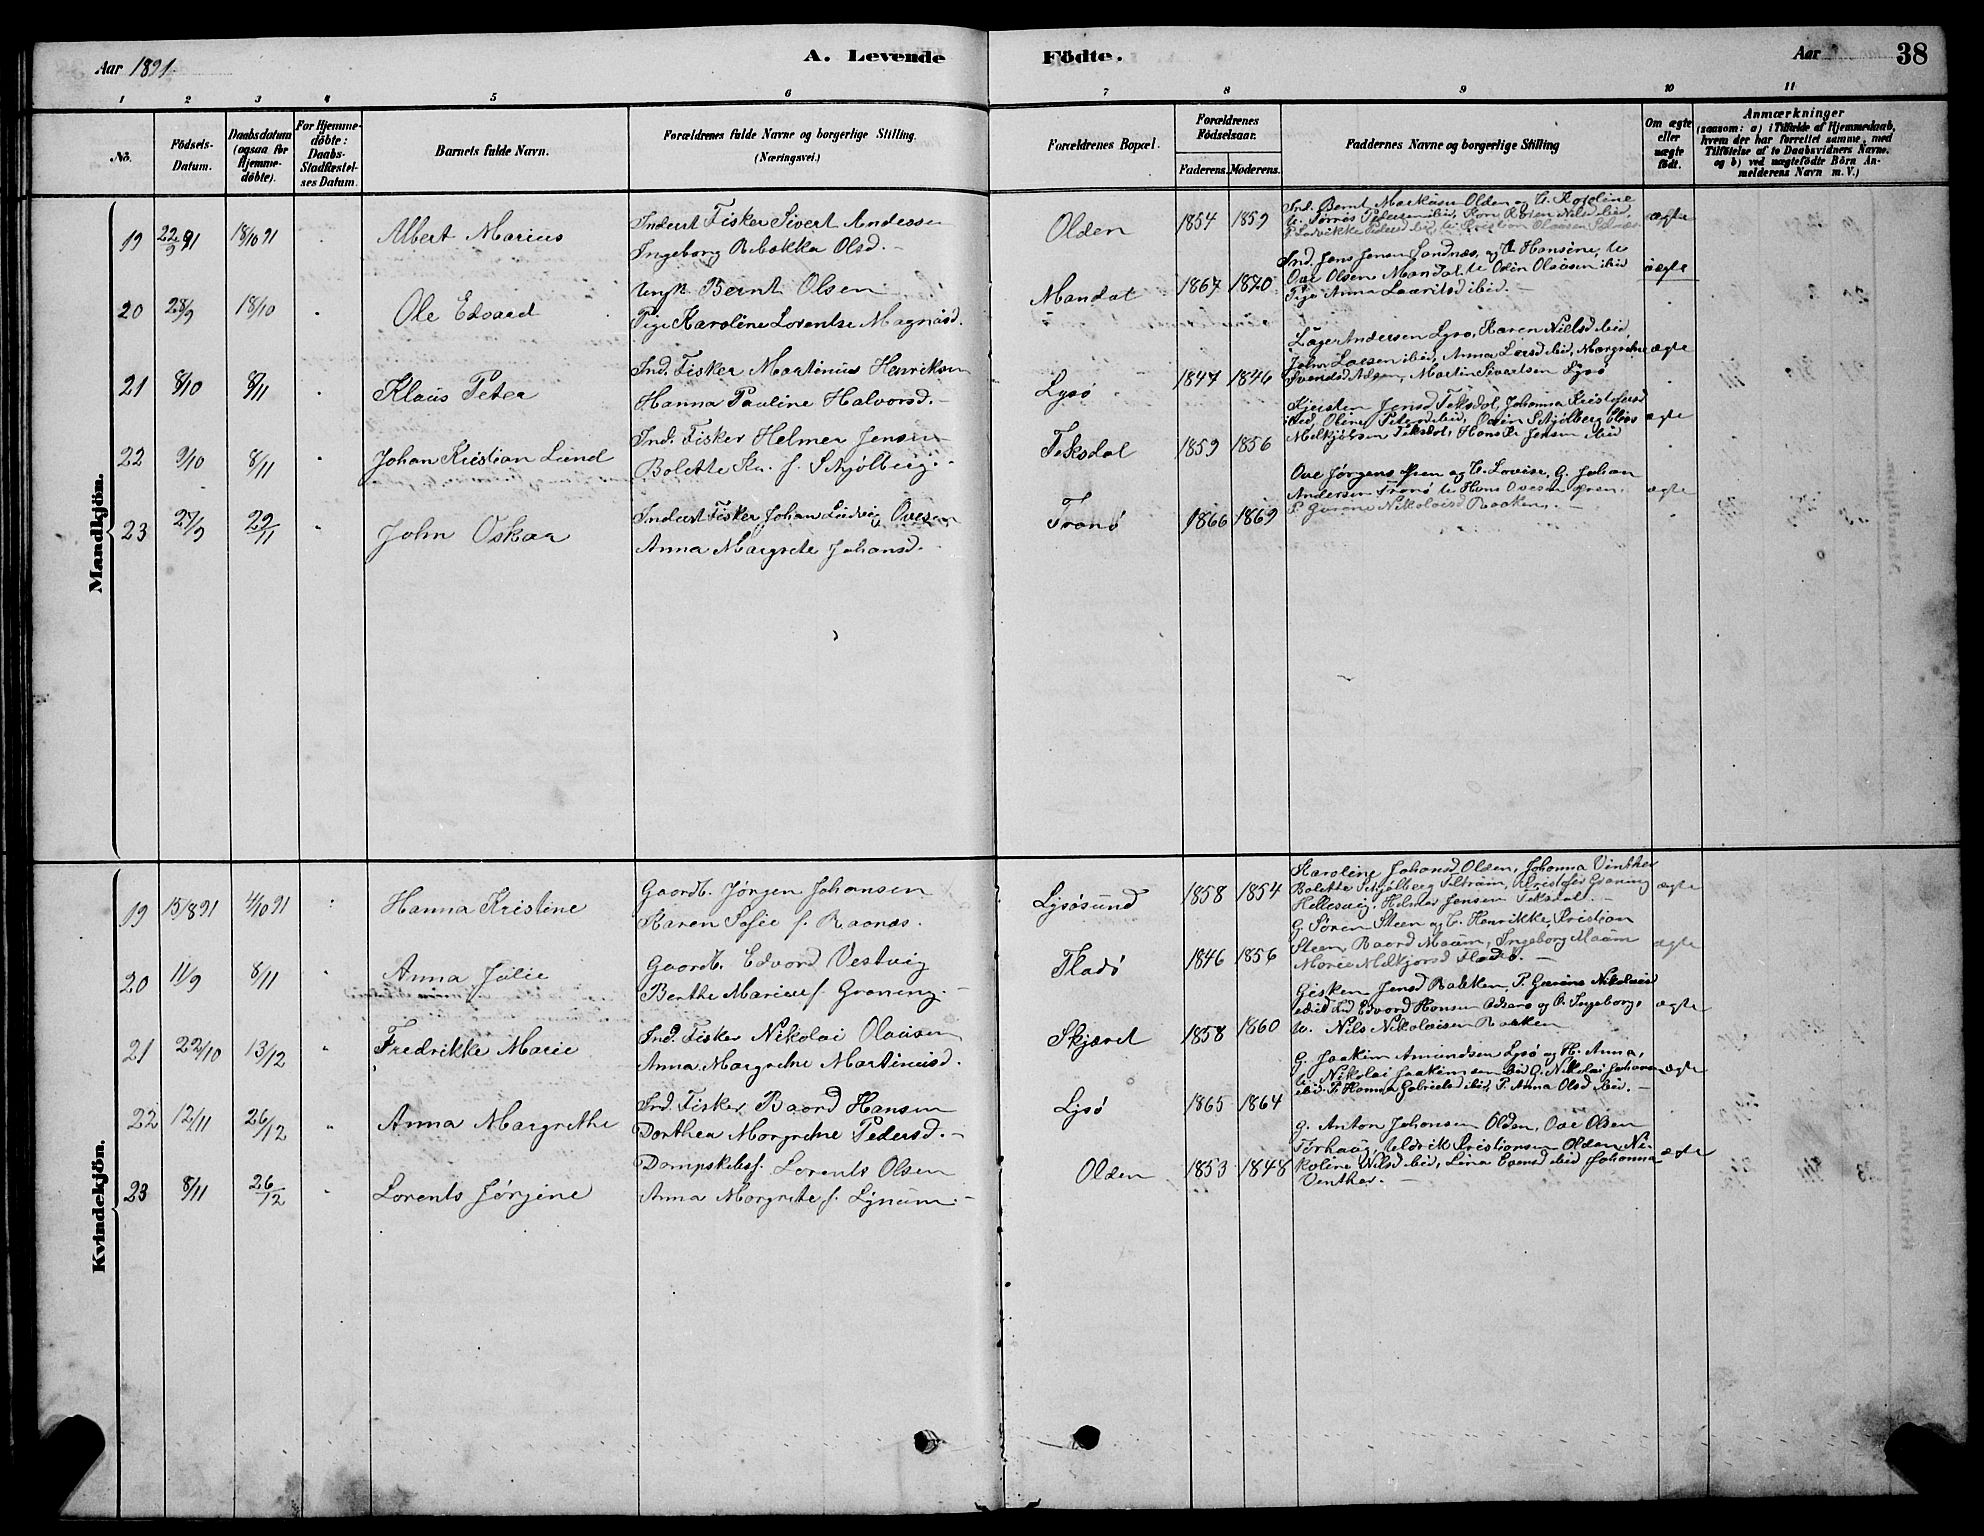 Aar 1891.
A. Levende Födte.
Aar
38
1 2 3 4 5 6 7 8 9 10 11
No.
Födsels-Datum.
Daabsdatum (ogsaa for Hjemme-döbte).
For Hjemme-döbte: Daabs-Stadfæstel-ses Datum.
Barnets fulde Navn.
Forældrenes fulde Navne og borgerlige Stilling. (Næringsvei.)
Forældrenes Bopæl.
Forældrenes Födselsaar.
Faderens. Moderens.
Faddernes Navne og borgerlige Stilling
Om ægte eller uægte födt.
Anmærkninger
(saasom: a) i Tilfælde af Hjemmedaab, hvem der har forrettet samme, med Tilföielse af to Daabsvidners Navne, og b) ved uægtefödte Börn An-melderens Navn m. V.)
Mandkjön.
19 22/9 91 18/10 91 Albert Marius
Inderst Fisker Sivert Andersen
Ingeborg Rebekka Olsd.
Olden 1854 1859
Ind. Bernt Markusen Olden og H. Roseline
ægte
20 28/9 18/10 Ole Edvard
Ungk. Bernt Olsen
Pige Karoline Lorentse Magnusd.
Mandal 1867 1870
Ind. Jens Jensen Sandnæs, og H. Hansine, U.
Ove Olsen Mandal, U. Odin Olausen ibid
Pige Anna Lauritsd ibid. —
uægte
21 8/10 8/11 Klaus Peter
Ind. Fisker Martinus Henriksen
Hanna Pauline Halvorsd.
Lysö 1847 1846
Andersen Lysö, Karen Nielsd ibid,
John Larsen ibid, Anna Larsd ibid, Margrethe
Martin Sivertsen Lysö
ægte
22 9/10 8/11 Johan Kristian Lund
Ind. Fisker Helmer Jensen
Bolette Ka. f. Schjølberg.
Teksdal 1859 1856
Kjersten Jensd Teksdal, Johanna Kristofersd
ibid, Oline Petersd ibid, Odin Schjølberg
Melkjørsen Teksdal, Hans P. Jensen ibid
ægte
23 27/9 29/11 John Oskar
Inderst Fisker Johan Ludvig Ovesen
Anna Margrete Johansd.
Tranø 1866 1869
Ove Jørgens og H. Lovise, G. Johan
Andersen Tranø U. Hans Ovesen
P. Gurine Nikolaisd Rakken. —
ægte
Kvindekjön.
19 15/8 91 4/10 91 Hanna Kristine
Gaardb. Jørgen Johansen
Karen Sofie f. Raanæs.
Lysøsund 1858 1854
Karoline Johansd Olden, Johanna Vinther
Bolette Schjølberg Kristofer Graning
Hellesvig, Helmer Jensen Teksdal. —
ægte
20 11/9 8/11 Anna Julie
Gaardb. Edvard Vestvig
Berthe Marie f. Graning.
Fladø 1846 1856
G. Sören Steen og H. Henrikke, Kristian
Steen, Baard Maum, Ingeborg Maum
Marie Melkjørsd Fladø. —
ægte
21 22/10 13/12 Fredrikke Marie
Ind. Fisker Nikolai Olausen
Anna Margrethe Martinusd.
Skjæret 1858 1860
Gisken Jensd Rakken, P. Gurine Nikolaisd
ibid Ind Edvard Hansen og H. Ingeborg,
U. Nils Nikolaisen Rakken
ægte
22 12/11 26/12 Anna Margrethe
Ind. Fisker Baard Hansen
Dorthea Margrethe Pedersd. —
Lysø 1865 1864
G. Joakim Amundsen Lysö og H. Anna,
U. Nikolai Joakimsen ibid G. Nikolai Johansen
ibid P. Hanna Gabrielsd ibid, P. Anna Olsd ibid. —
ægte
23 8/11 26/12 Lorents Jørgine
Dampskibsf. Lorents Olsen
Anna Margrete f. Lynum. —
Olden 1853 1848
G. Anton Johansen Olden, Ove Olsen
Kristiansen Olden, Ni-
koline Nilsd ibid, Lina Evensd ibid Johanna
Vinther. —
ægte